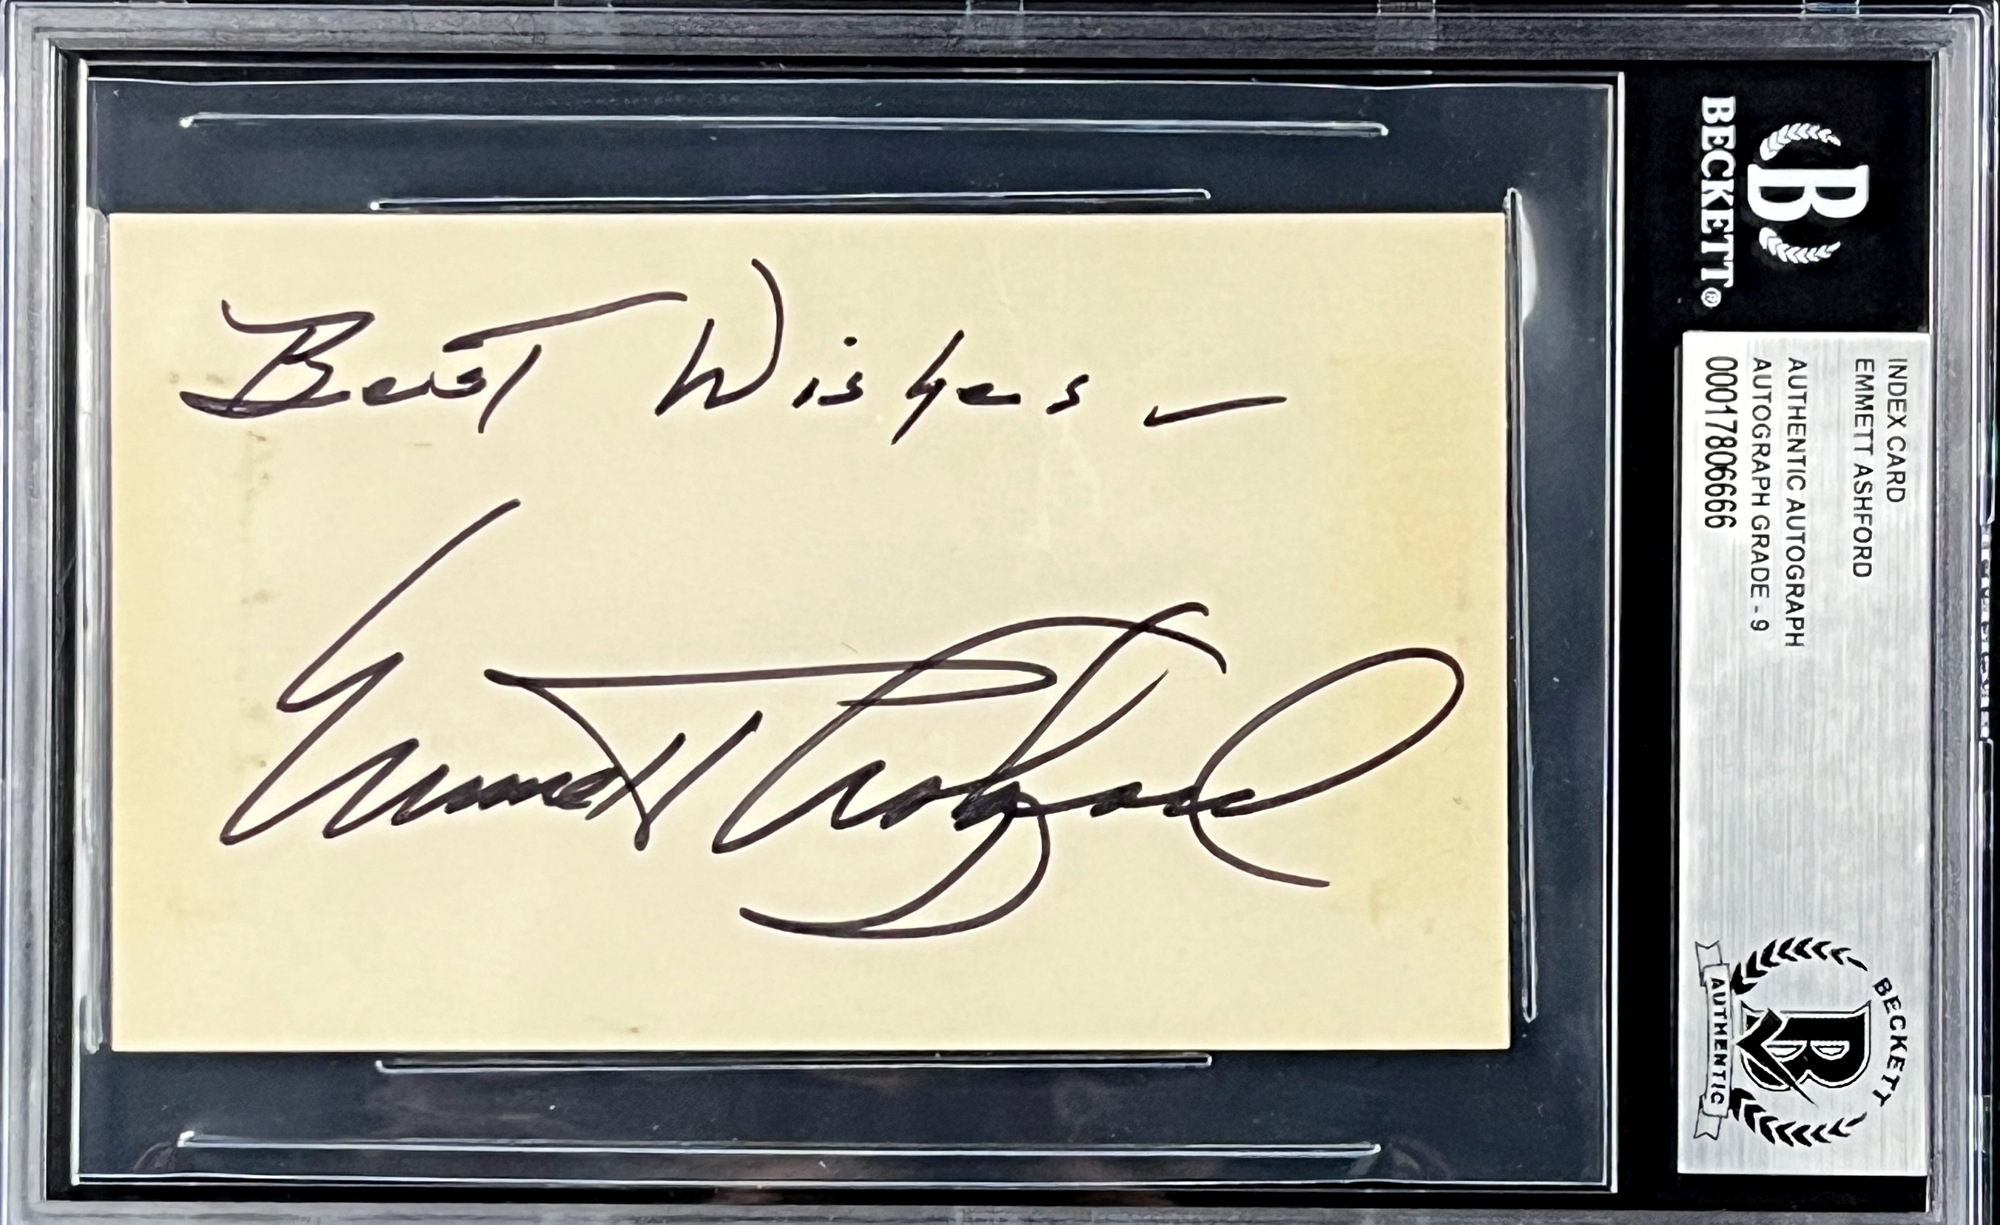 Best Wishes –
Emmett Ashford
B
BECKETT®
INDEX CARD
EMMETT ASHFORD
AUTHENTIC AUTOGRAPH
AUTOGRAPH GRADE - 9
00017806666
BECKETT
B
AUTHENTIC